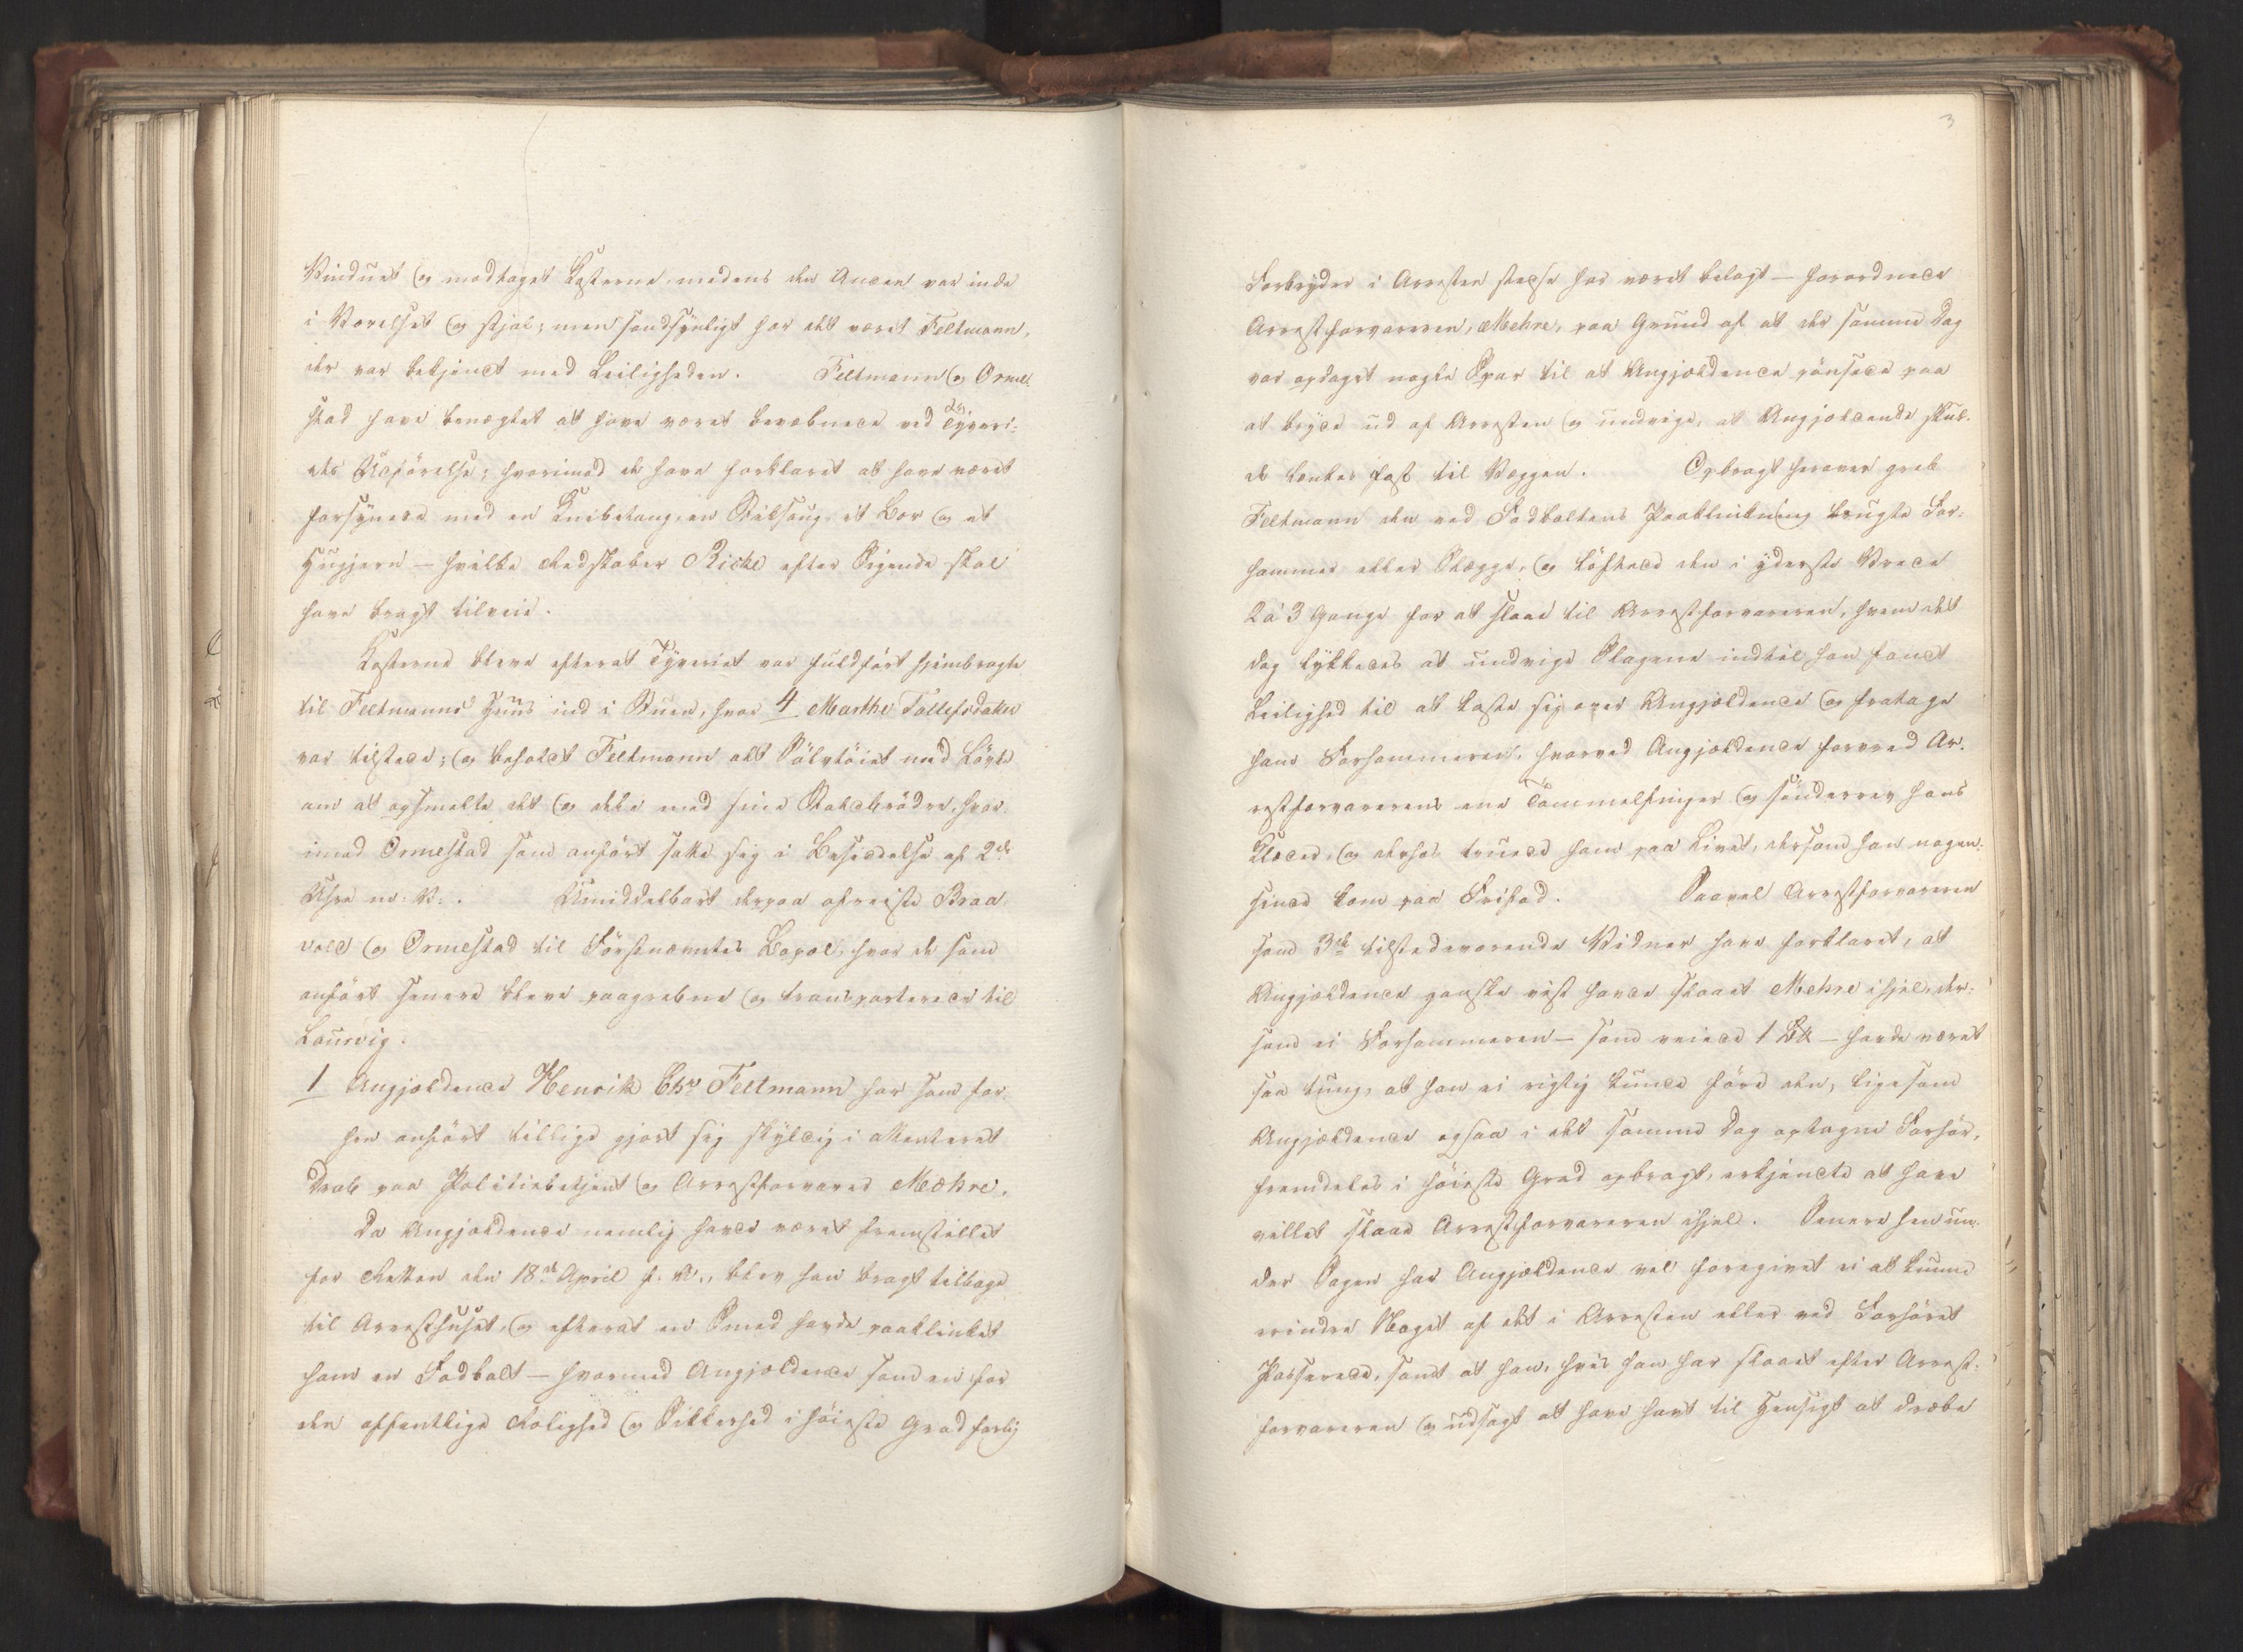 Vinduet og modtaget Kosterne, medens den Anden var inde
i Værelset og stjal; men sandsynligt har det været Feltmann,
der var bekjendt med Leiligheden. Feltmann og Orme-
stad have benægtet at have været bevæbnede ved Tyveri-
ets Udförelse; hvorimod de have forklaret at have været
forsynede med en Knibetang, en Stiksaug, et Bor og et
Hugjern – hvilke Redskaber Riche efter Sigende skal
have bragt tilveie.
Kosterne bleve efterat Tyveriet var fuldfört hjembragte
til Feltmanns Huus ind i Stuen, hvor 4 Marthe Tollefsdatter
var tilstede; og beholdt Feltmann alt Sölvtöiet med Löfte
om at opsmelte det og dele med sine Staldbrödre, hvor-
imod Ormestad som anfört satte sig i Besiddelse af 2de
Uhre m: V: . Umiddelbart derpaa afreiste Braa-
vold og Ormestad til Förstnævntes Bopæl, hvor de som
anfört senere bleve paagrebne og transporterede til
Laurvig.
1 Angjældende Henrik Chr Feltmann har som for-
hen anfört tillige gjort sig skyldig i attenteret
Drab paa Politiebetjent og Arrestforvarer Mæhre.
Da Angjældende nemlig havde været fremstillet
for Retten den 18de April f. A., blev han bragt tilbage
til Arresthuset, og efterat en Smed havde paaklinket
ham en Fodbolt – hvormed Angjældende som en for
den offentlige Rolighed og Sikkerhed i höieste Grad farlig
3
Forbryder i Arresten stedse har været belagt – forordnede
Arrestforvareren, Mehre, paa Grund af at der samme Dag
var opdaget nogle Spor til at Angjældende pönsede paa
at bryde ud af Arresten og undvige, at Angjældende skul-
de lænkes fast til Væggen. Opbragt herover greb
Feltmann den ved Fodboltens Paaklinkning brugte For-
hammer eller Slægge, og löftede den i yderste Vrede
2 à 3 Gange for at slaae til Arrestforvareren, hvem det
dog lykkedes at undvige Slagene indtil han fandt
Leilighed til at kaste sig over Angjældende og fratage
ham Forhammeren, hvorved Angjældende forvred Ar-
restforvarerens ene Tommelfinger og sönderrev hans
Klæder, og derhos truede ham paa Livet, dersom han nogen-
sinde kom paa Frifod. Saavel Arrestforvareren
som 3de tilstedeværende Vidner have forklaret, at
Angjældende ganske vist havde slaaet Mehre ihjel, der-
som ei Forhammeren – som veiede 1 – havde været
saa tung, at han ei rigtig kunde före den, ligesom
Angjældende ogsaa i det samme Dag optagne Forhör,
fremdeles i höieste Grad opbragt, erkjendte at have
villet slaae Arrestforvareren ihjel. Senere hen un-
der Sagen har Angjældende vel foregivet ei at kunne
erindre Noget af det i Arresten eller ved Forhöret
Passerede, samt at han, hvis han har slaaet efter Arrest-
forvareren og udsagt at have havt til Hensigt at dræbe